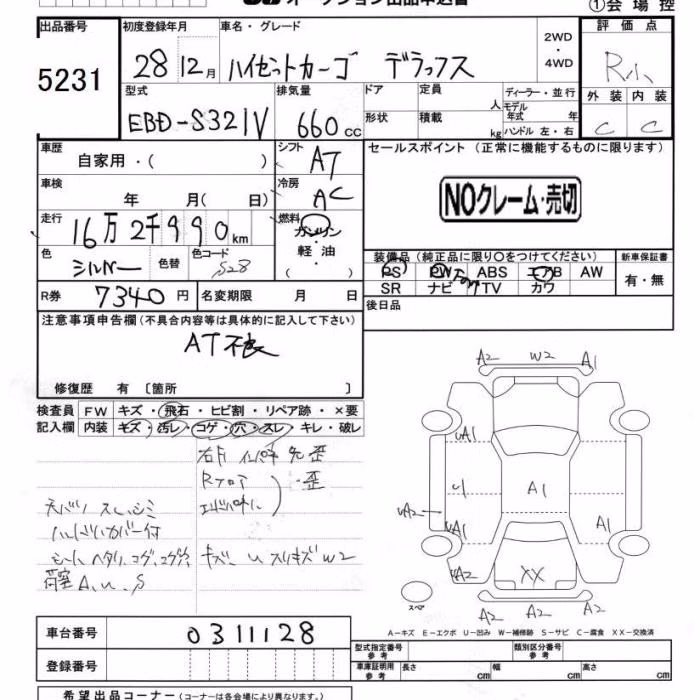 オークション出品申込書
①会場控
出品番号 初度登録年月 車名・グレード 2WD・4WD 評価点
5231 28 12月 ハイゼットカーゴ デラックス R
型式 排気量 ドア 定員 人 ディーラー・並行 外装 内装
EBD-S321V 660cc 形状 積載 kg モデル年式 年 ハンドル 左・右 C C
車歴 自家用・( ) シフト AT セールスポイント (正常に機能するものに限ります)
車検 年 月( 日) 冷房 AC NOクレーム・売切
走行 16万2千990km 燃料 ガソリン・軽油 ( )
色 シルバー 色替 色コード S28
装備品 (純正品に限り○をつけてください) 新車保証書
PS PW ABS エアB AW 有・無
SR ナビ TV カワ
R券 7340円 名変期限 月 日 後日品
注意事項申告欄 (不具合内容等は具体的に記入して下さい)
AT不良
修復歴 有〔箇所 〕
検査員 FW キズ・飛石・ヒビ割・リペア跡・×要
記入欄 内装 キズ・汚レ・コゲ・穴・スレ・キレ・破レ
Rフロア 歪
ハンドルカバー付
シートヘタリ、コゲ、コゲ穴 キズ、U スリキズW2
荷室 A、U、S
A2 W2 A1
UA1
U A1
UA2
UA1 A1
UA2 XX
A2 A2 A2
スペア
A-キズ E-エクボ U-凹み W-補修跡 S-サビ C-腐食 XX-交換済
車台番号 0311128
登録番号
型式指定番号 参考 類別区分番号 参考
車庫証明用 参考 長さ cm 幅 cm 高さ cm
希望出品コーナー (コーナーは各会場により異なります。)